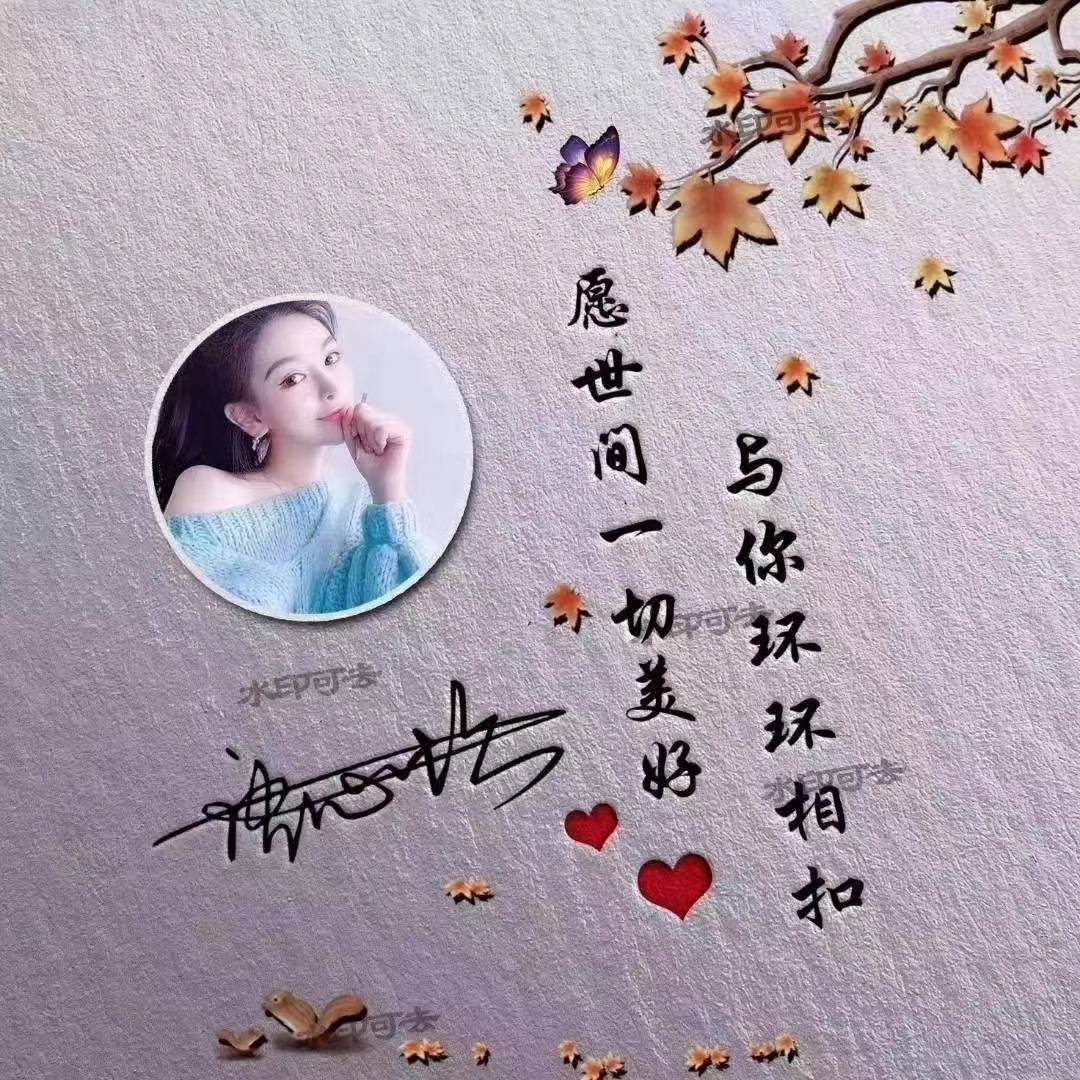 愿世间一切美好
与你环环相扣
水印可去
水印可去
水印可去
水印可去
水印可去